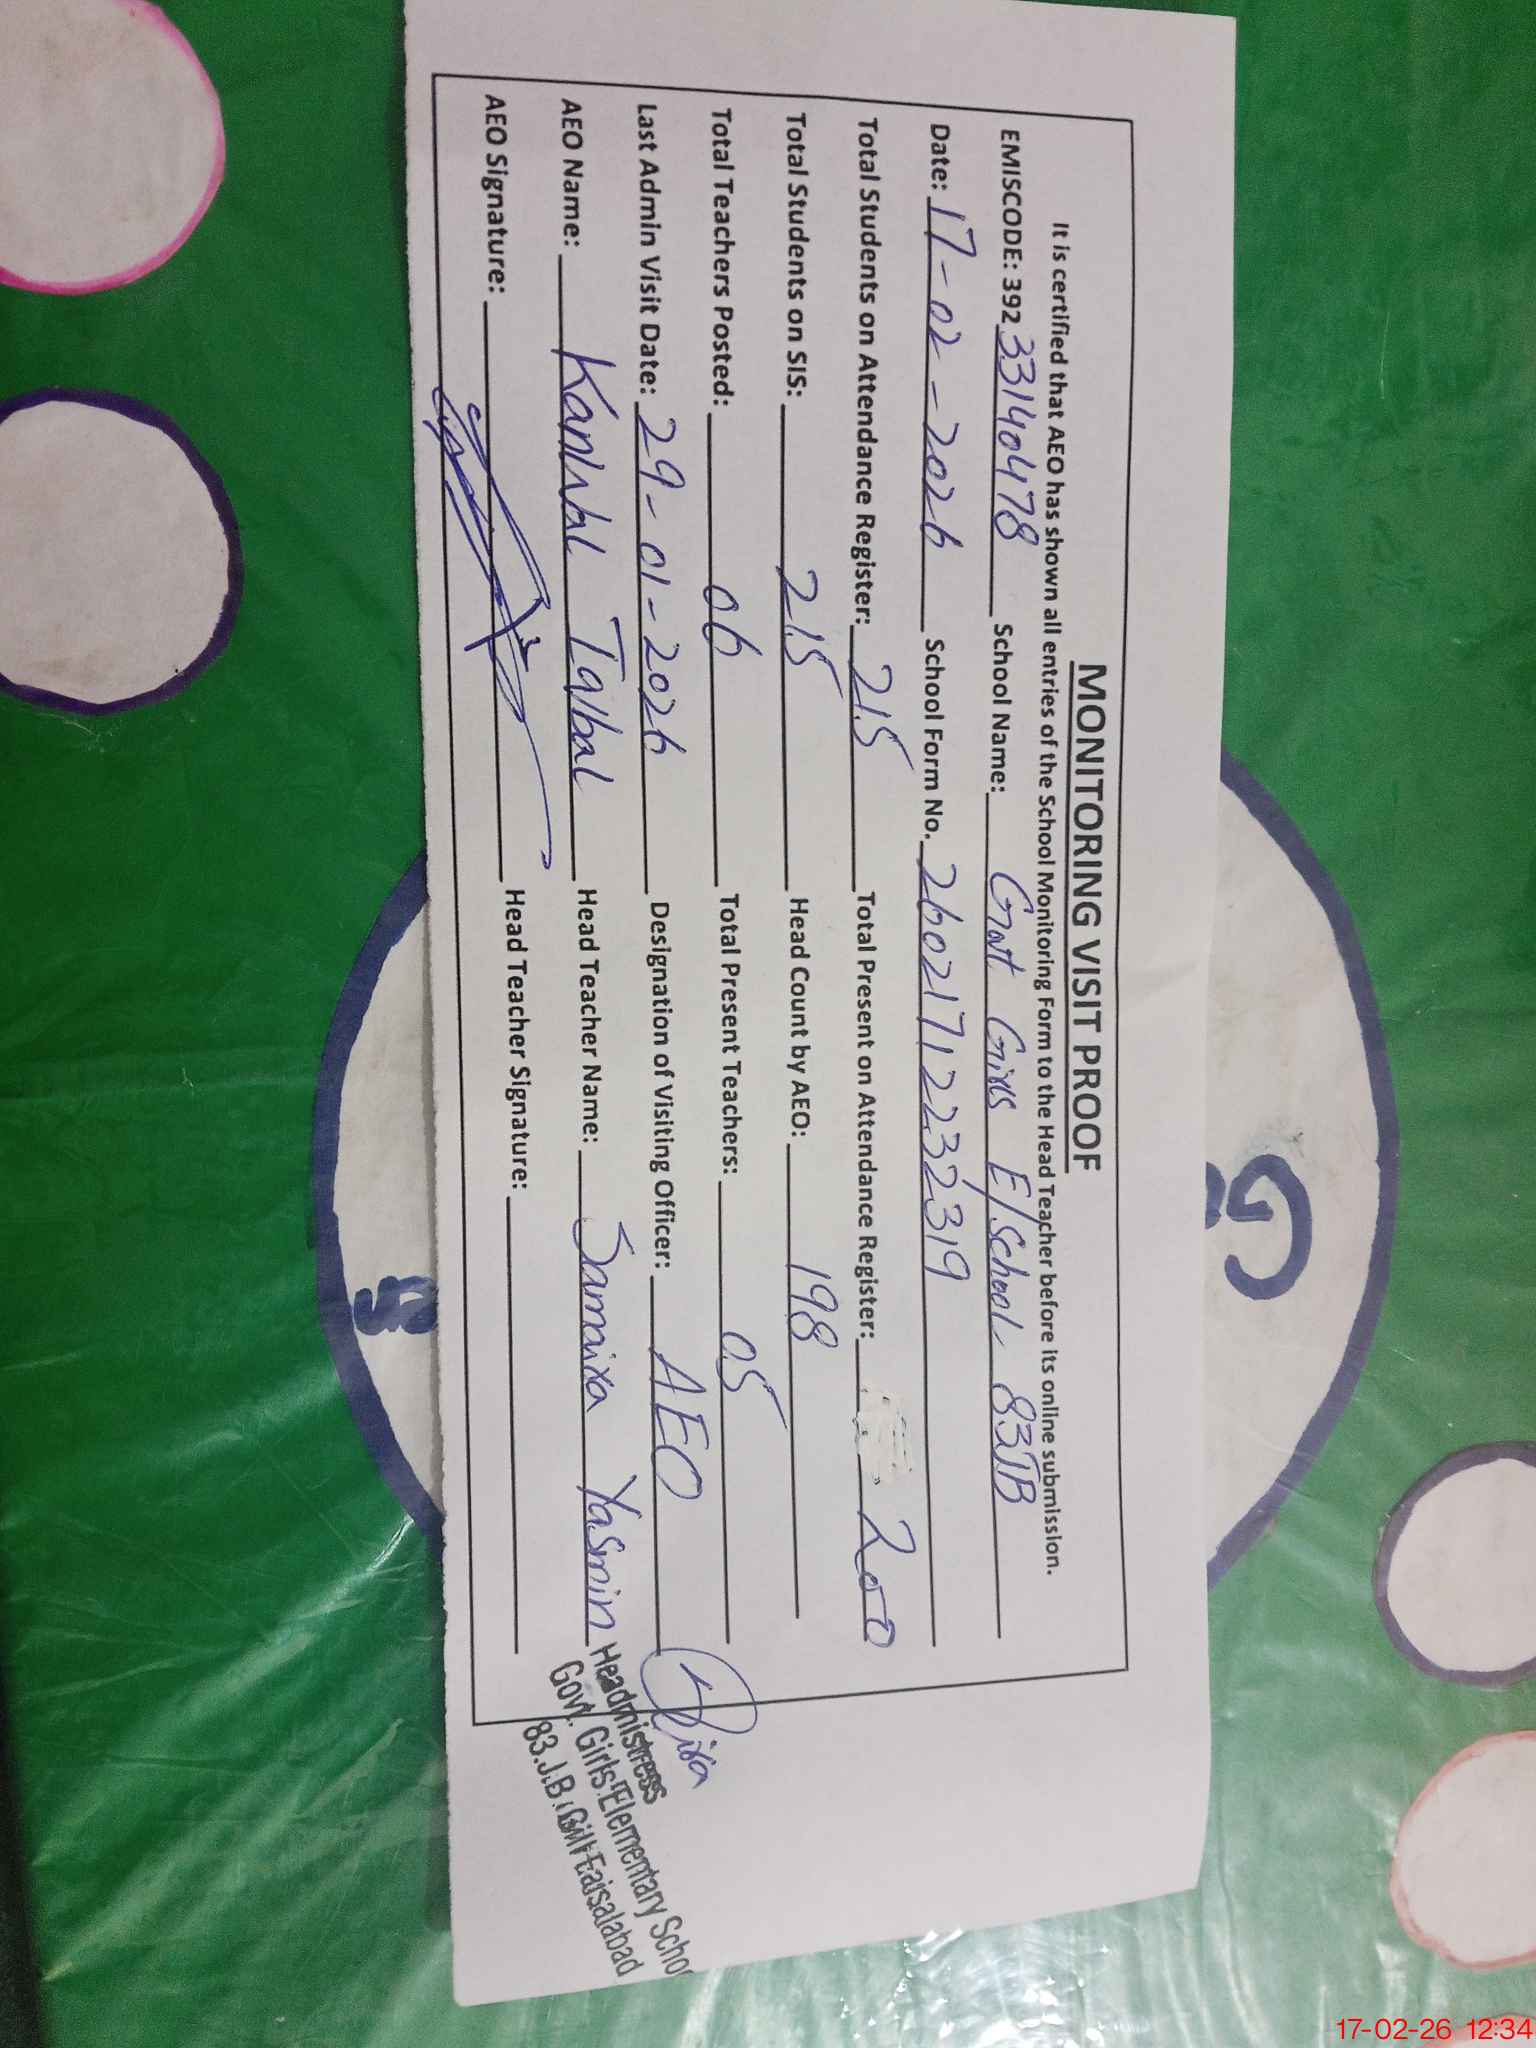 MONITORING VISIT PROOF
It is certified that AEO has shown all entries of the School Monitoring Form to the Head Teacher before its online submission.
EMISCODE: 392 33140478 School Name: Govt Girls E/School 83JB
Date: 17-02-2026 School Form No. 26021712232319
Total Students on Attendance Register: 215 Total Present on Attendance Register: 200
Total Students on SIS: 215 Head Count by AEO: 198
Total Teachers Posted: 06 Total Present Teachers: 05
Last Admin Visit Date: 29-01-2026 Designation of Visiting Officer: AEO
AEO Name: Kanwal Head Teacher Name: Yasmin
AEO Signature: Head Teacher Signature:
Headmistress
Govt. Girls Elementary Schoo
83.J.B. Gill Faisalabad
G
17-02-26 12:34